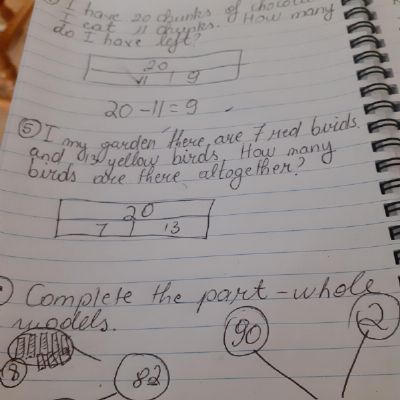 I have 20 chunks of
I eat 11 chunks. How many
do I have left?
20
11 9
20 - 11 = 9
⑤ I my garden there are 7 red birds
and 13 yellow birds. How many
birds are there altogether?
20
7 13
Complete the part-whole
models.
90 2
8 82